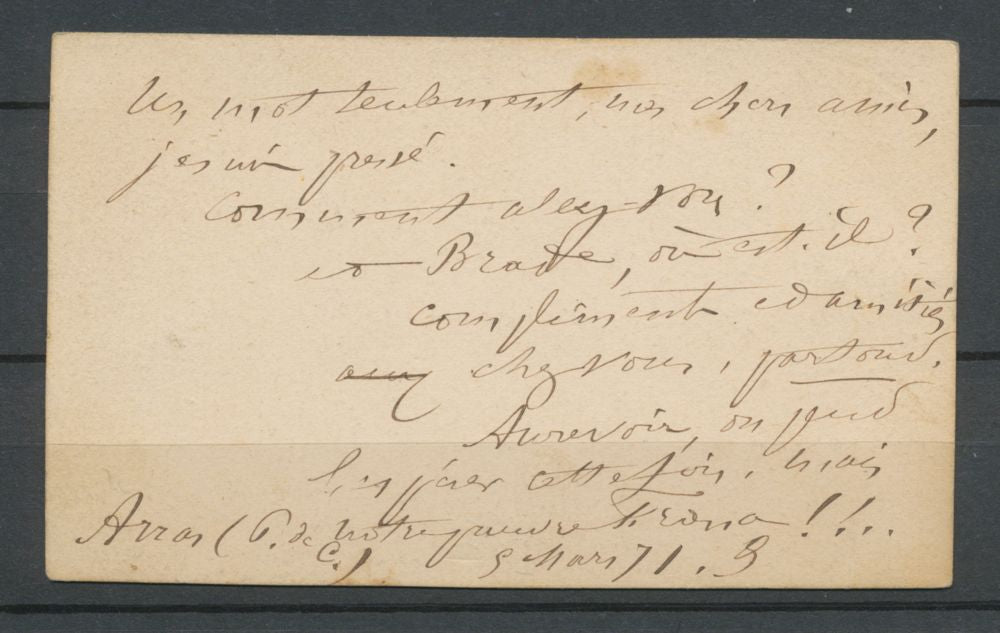 Un mot seulement, mes chers amis,
je suis pressé.
Comment allez-vous ?
et Brade, où est-il ?
compliments et amitiés
chez vous, partout.
Au revoir, on peut
l'espérer cette fois, mais
notre pauvre !!...
Arras (P. de C.) 5 Mars 71. B